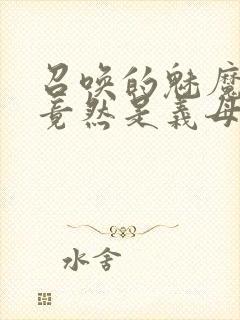 召唤的魅魔
竟然是义母
水舍